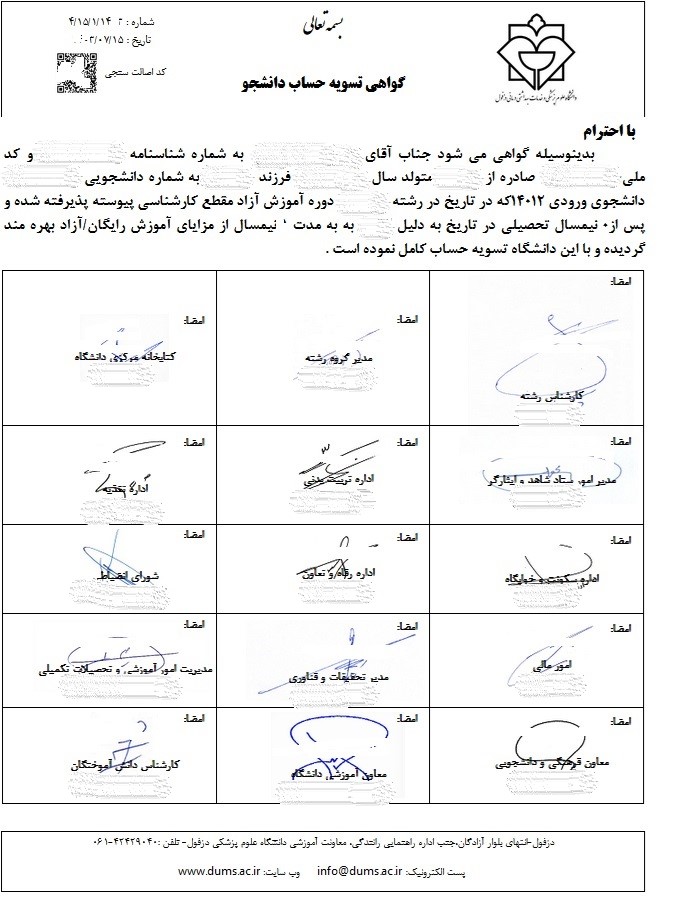 بسمه تعالی
گواهی تسویه حساب دانشجو
شماره : ۴/۱۵/۱/۱۴
تاریخ : ۰۲/۰۷/۱۵
کد اصالت سنجی
دانشگاه علوم پزشکی و خدمات بهداشتی درمانی دزفول
با احترام
بدینوسیله گواهی می شود جناب آقای به شماره شناسنامه و کد
ملی صادره از متولد سال فرزند به شماره دانشجویی
دانشجوی ورودی ۱۴۰۱۲که در تاریخ در رشته دوره آموزش آزاد مقطع کارشناسی پیوسته پذیرفته شده و
پس از۰ نیمسال تحصیلی در تاریخ به دلیل به به مدت ۰ نیمسال از مزایای آموزش رایگان/آزاد بهره مند
گردیده و با این دانشگاه تسویه حساب کامل نموده است .
امضا:
کارشناس رشته
امضا:
مدیر گروه رشته
امضا:
کتابخانه مرکزی دانشگاه
امضا:
مدیر امور ستاد شاهد و ایثارگر
امضا:
اداره تربیت بدنی
امضا:
اداره تغذیه
امضا:
اداره سکونت و خوابگاه
امضا:
اداره رفاه و تعاون
امضا:
شورای انضباط
امضا:
امور مالی
امضا:
مدیر تحقیقات و فناوری
امضا:
مدیریت امور آموزشی و تحصیلات تکمیلی
امضا:
معاون فرهنگی و دانشجویی
امضا:
معاون آموزشی دانشگاه
امضا:
کارشناس دانش آموختگان
دزفول-انتهای بلوار آزادگان،جنب اداره راهنمایی رانندگی، معاونت آموزشی دانشگاه علوم پزشکی دزفول- تلفن :۴۲۴۲۹۰۴۰-۰۶۱
پست الکترونیک: info@dums.ac.ir وب سایت: www.dums.ac.ir